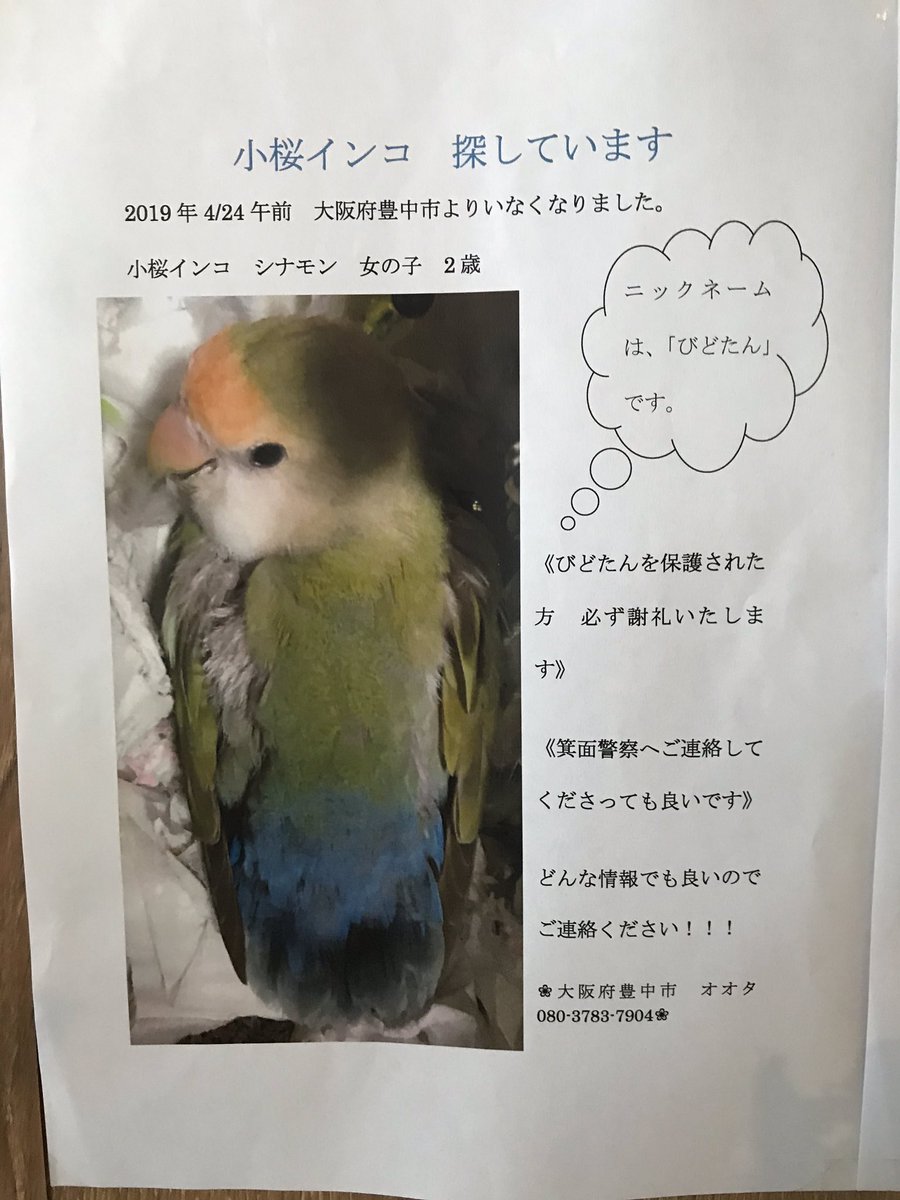 小桜インコ　探しています
2019 年 4/24 午前　大阪府豊中市よりいなくなりました。
小桜インコ　シナモン　女の子　2 歳
ニックネーム
は、「びどたん」
です。
《びどたんを保護された
方　必ず謝礼いたしま
す》
《箕面警察へご連絡して
くださっても良いです》
どんな情報でも良いので
ご連絡ください！！！
❀大阪府豊中市　オオタ
080-3783-7904❀